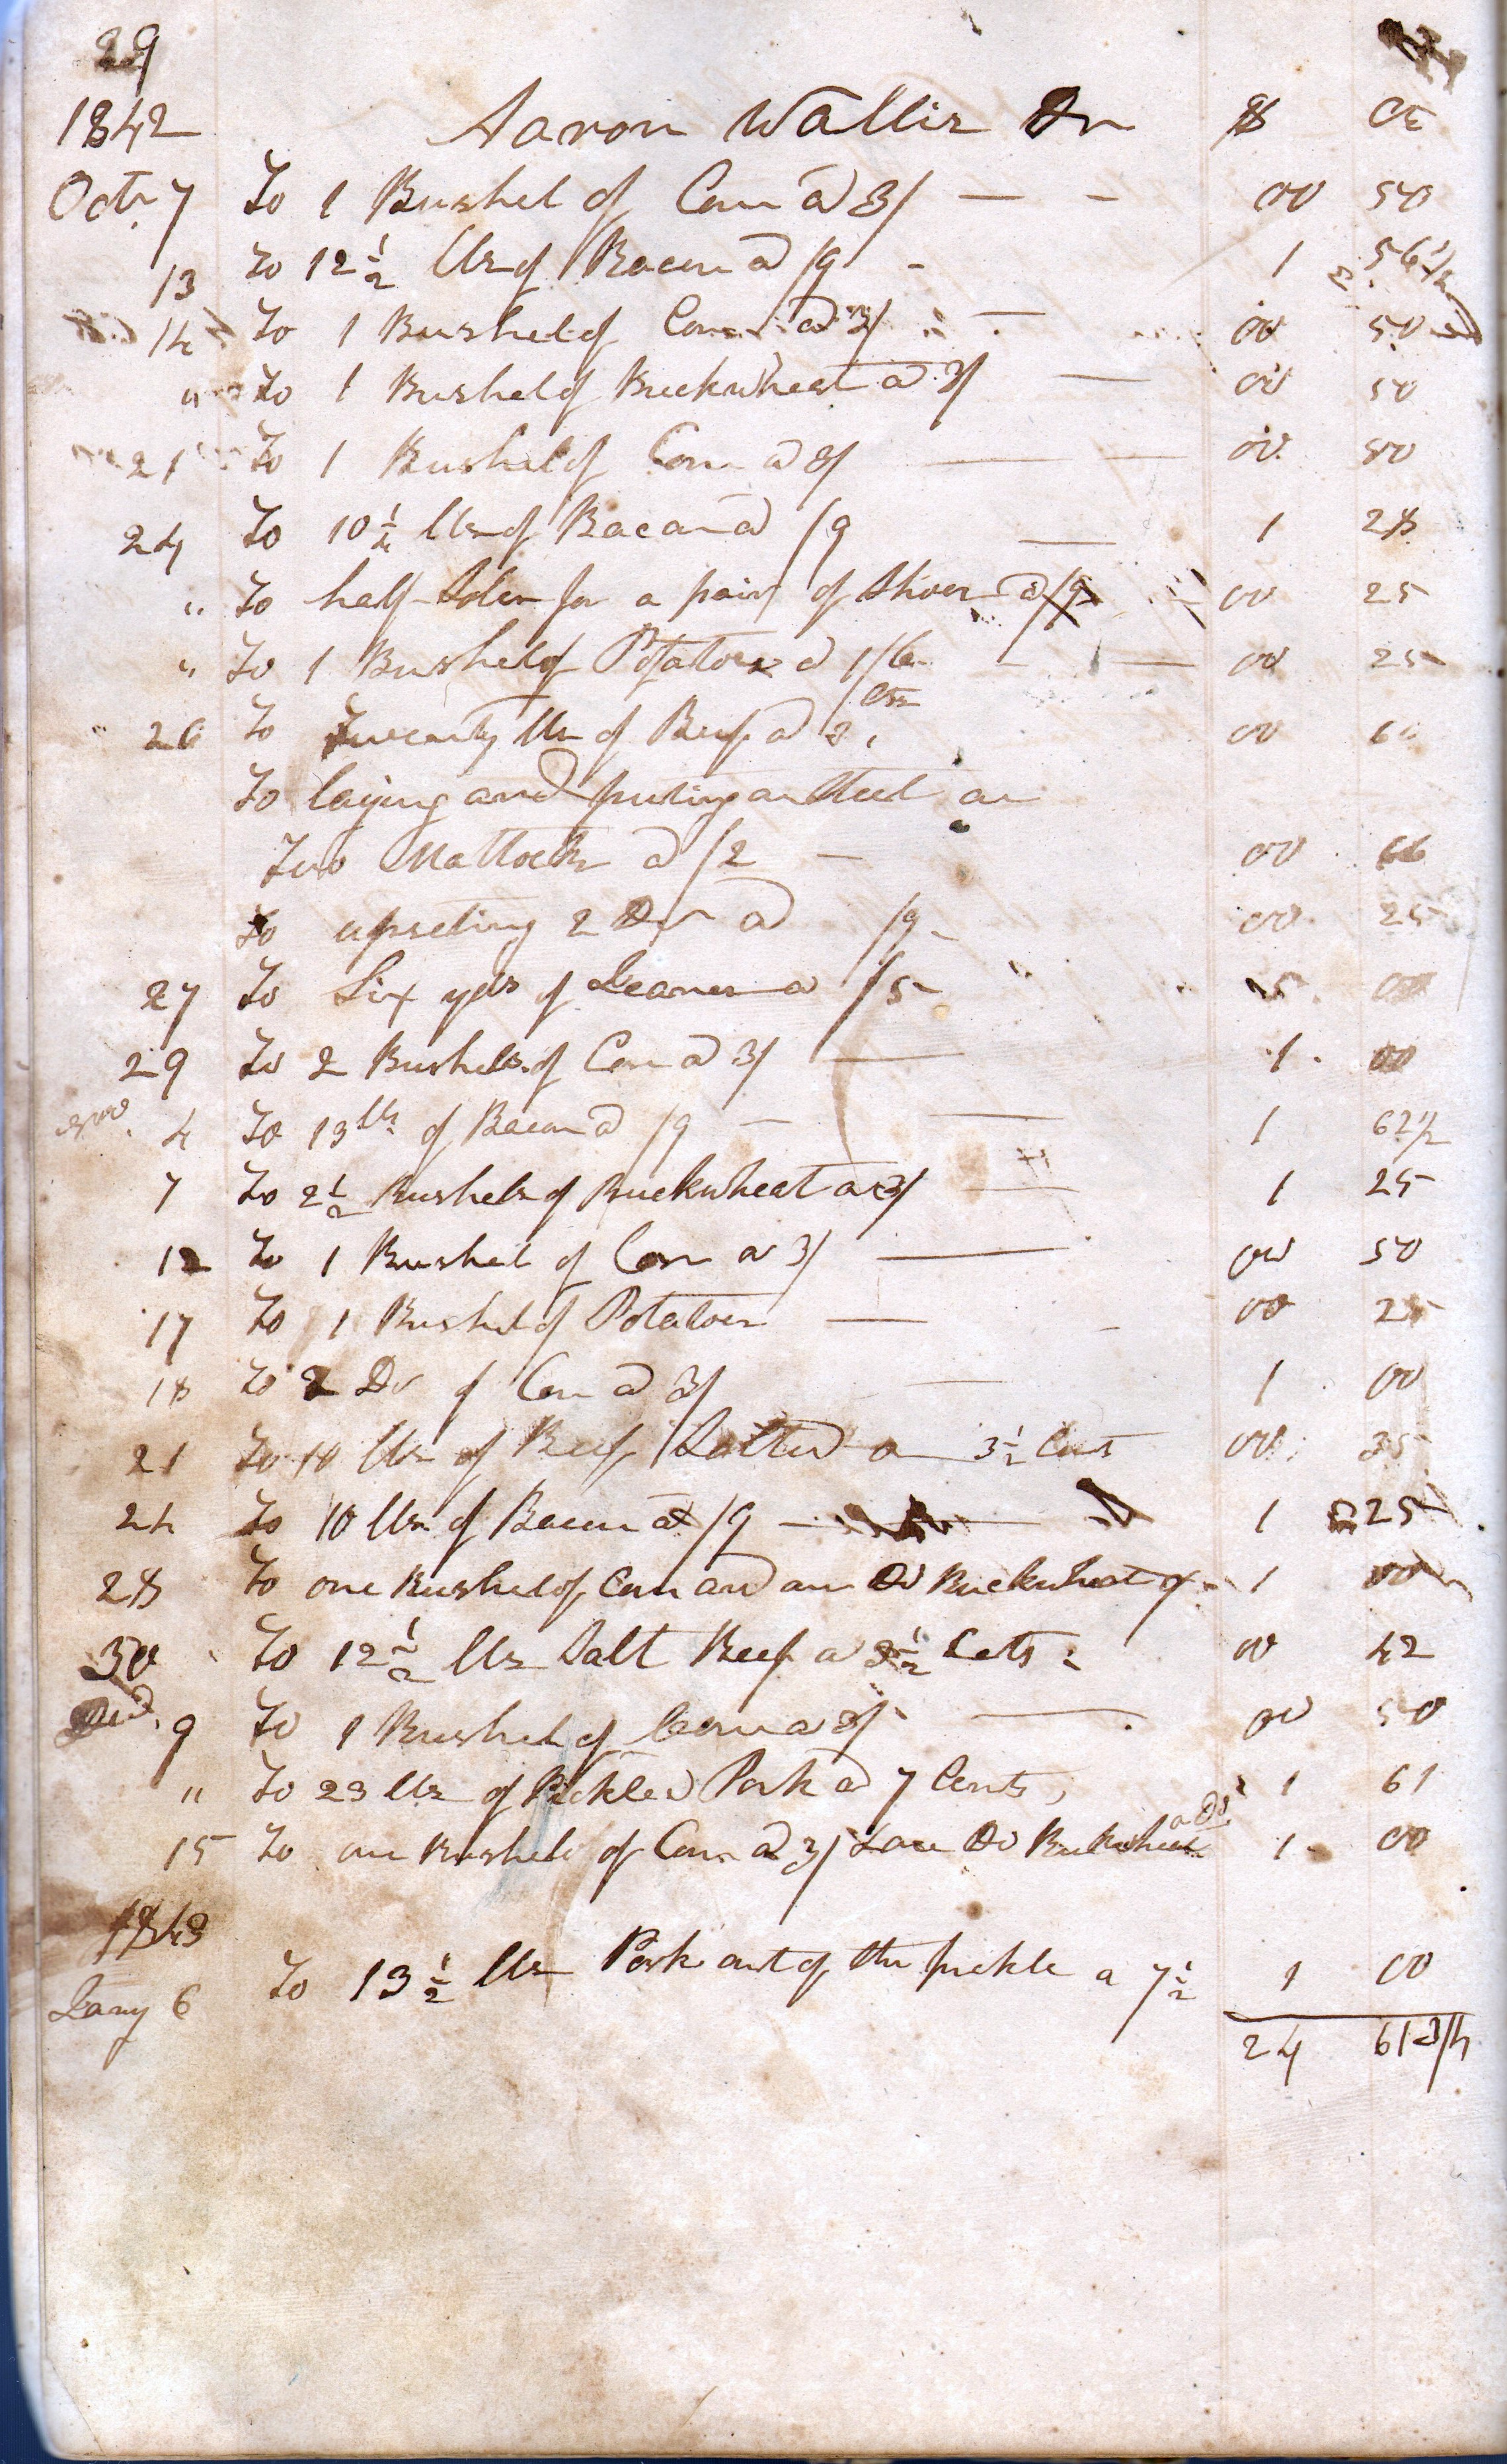 29
1842 Aaron Wallis Dr $ Ct
Oct. 7 To 1 Bushel of Corn a 3/ — - 00 50
13 To 12 1/2 lbs of Bacon a /9 - 1 56 1/2
14 To 1 Bushel of Corn a 3/ — 00 50
" To 1 Bushel of Buckwheat a 3/ — 00 50
21 To 1 Bushel of Corn a 3/ — — 00 50
24 To 10 1/4 lbs of Bacon a /9 — 1 28
" To half Soles for a pair of Shoes a 00 25
" To 1 Bushel of Potatoes a 1/6 - — 00 25
26 To Twenty lbs of Beef a 3 Cts 00 60
To laying and puting on Steel on
Two Mattocks a /2 — 00 66
To upseting 2 Do a /9 00 25
27 To Six yds of a /5 5 00
29 To 2 Bushels of Corn a 3/ — 1 00
Nov. 4 To 13 lbs of Bacon a /9 — — 1 62 1/2
7 To 2 1/2 Bushels of Buckwheat a 3/ — 1 25
12 To 1 Bushel of Corn a 3/ — 00 50
17 To 1 Bushel of Potatoes — - 00 25
18 To 2 Do of Corn a 3/ — 1 00
21 To 10 lbs of Beef Salted a 3 1/2 Cents 00 35
24 To 10 lbs of Bacon at /9 — 1 25
28 To one Bushel of Corn and one Do Buckwheat 1 00
30 To 12 1/2 lbs Salt Beef a 3 1/2 Cets 00 42
Decr. 9 To 1 Bushel of Corn a 3/ — 00 50
" To 23 lbs of Pickled Pork a 7 Cents, 1 61
15 To one Bushele of Corn a 3/ & one Do Buckwheat a Do 1 00
1843
Jany 6 To 13 1/2 lbs Pork out of the pickle a 7 1/2 1 00
24 61 3/4